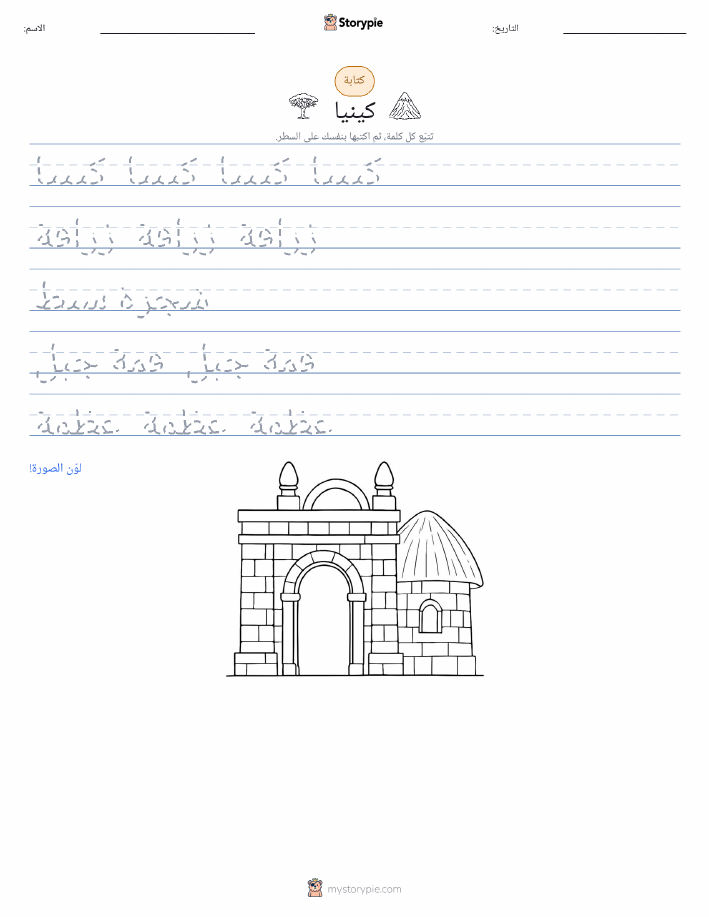 الاسم:
Storypie
التاريخ:
كتابة
كينيا
تتبّع كل كلمة، ثم اكتبها بنفسك على السطر.
كينيا كينيا كينيا كينيا
زرافة زرافة زرافة
شجرة سنط
قمة جبل قمة جبل
لوّن الصورة!
mystorypie.com